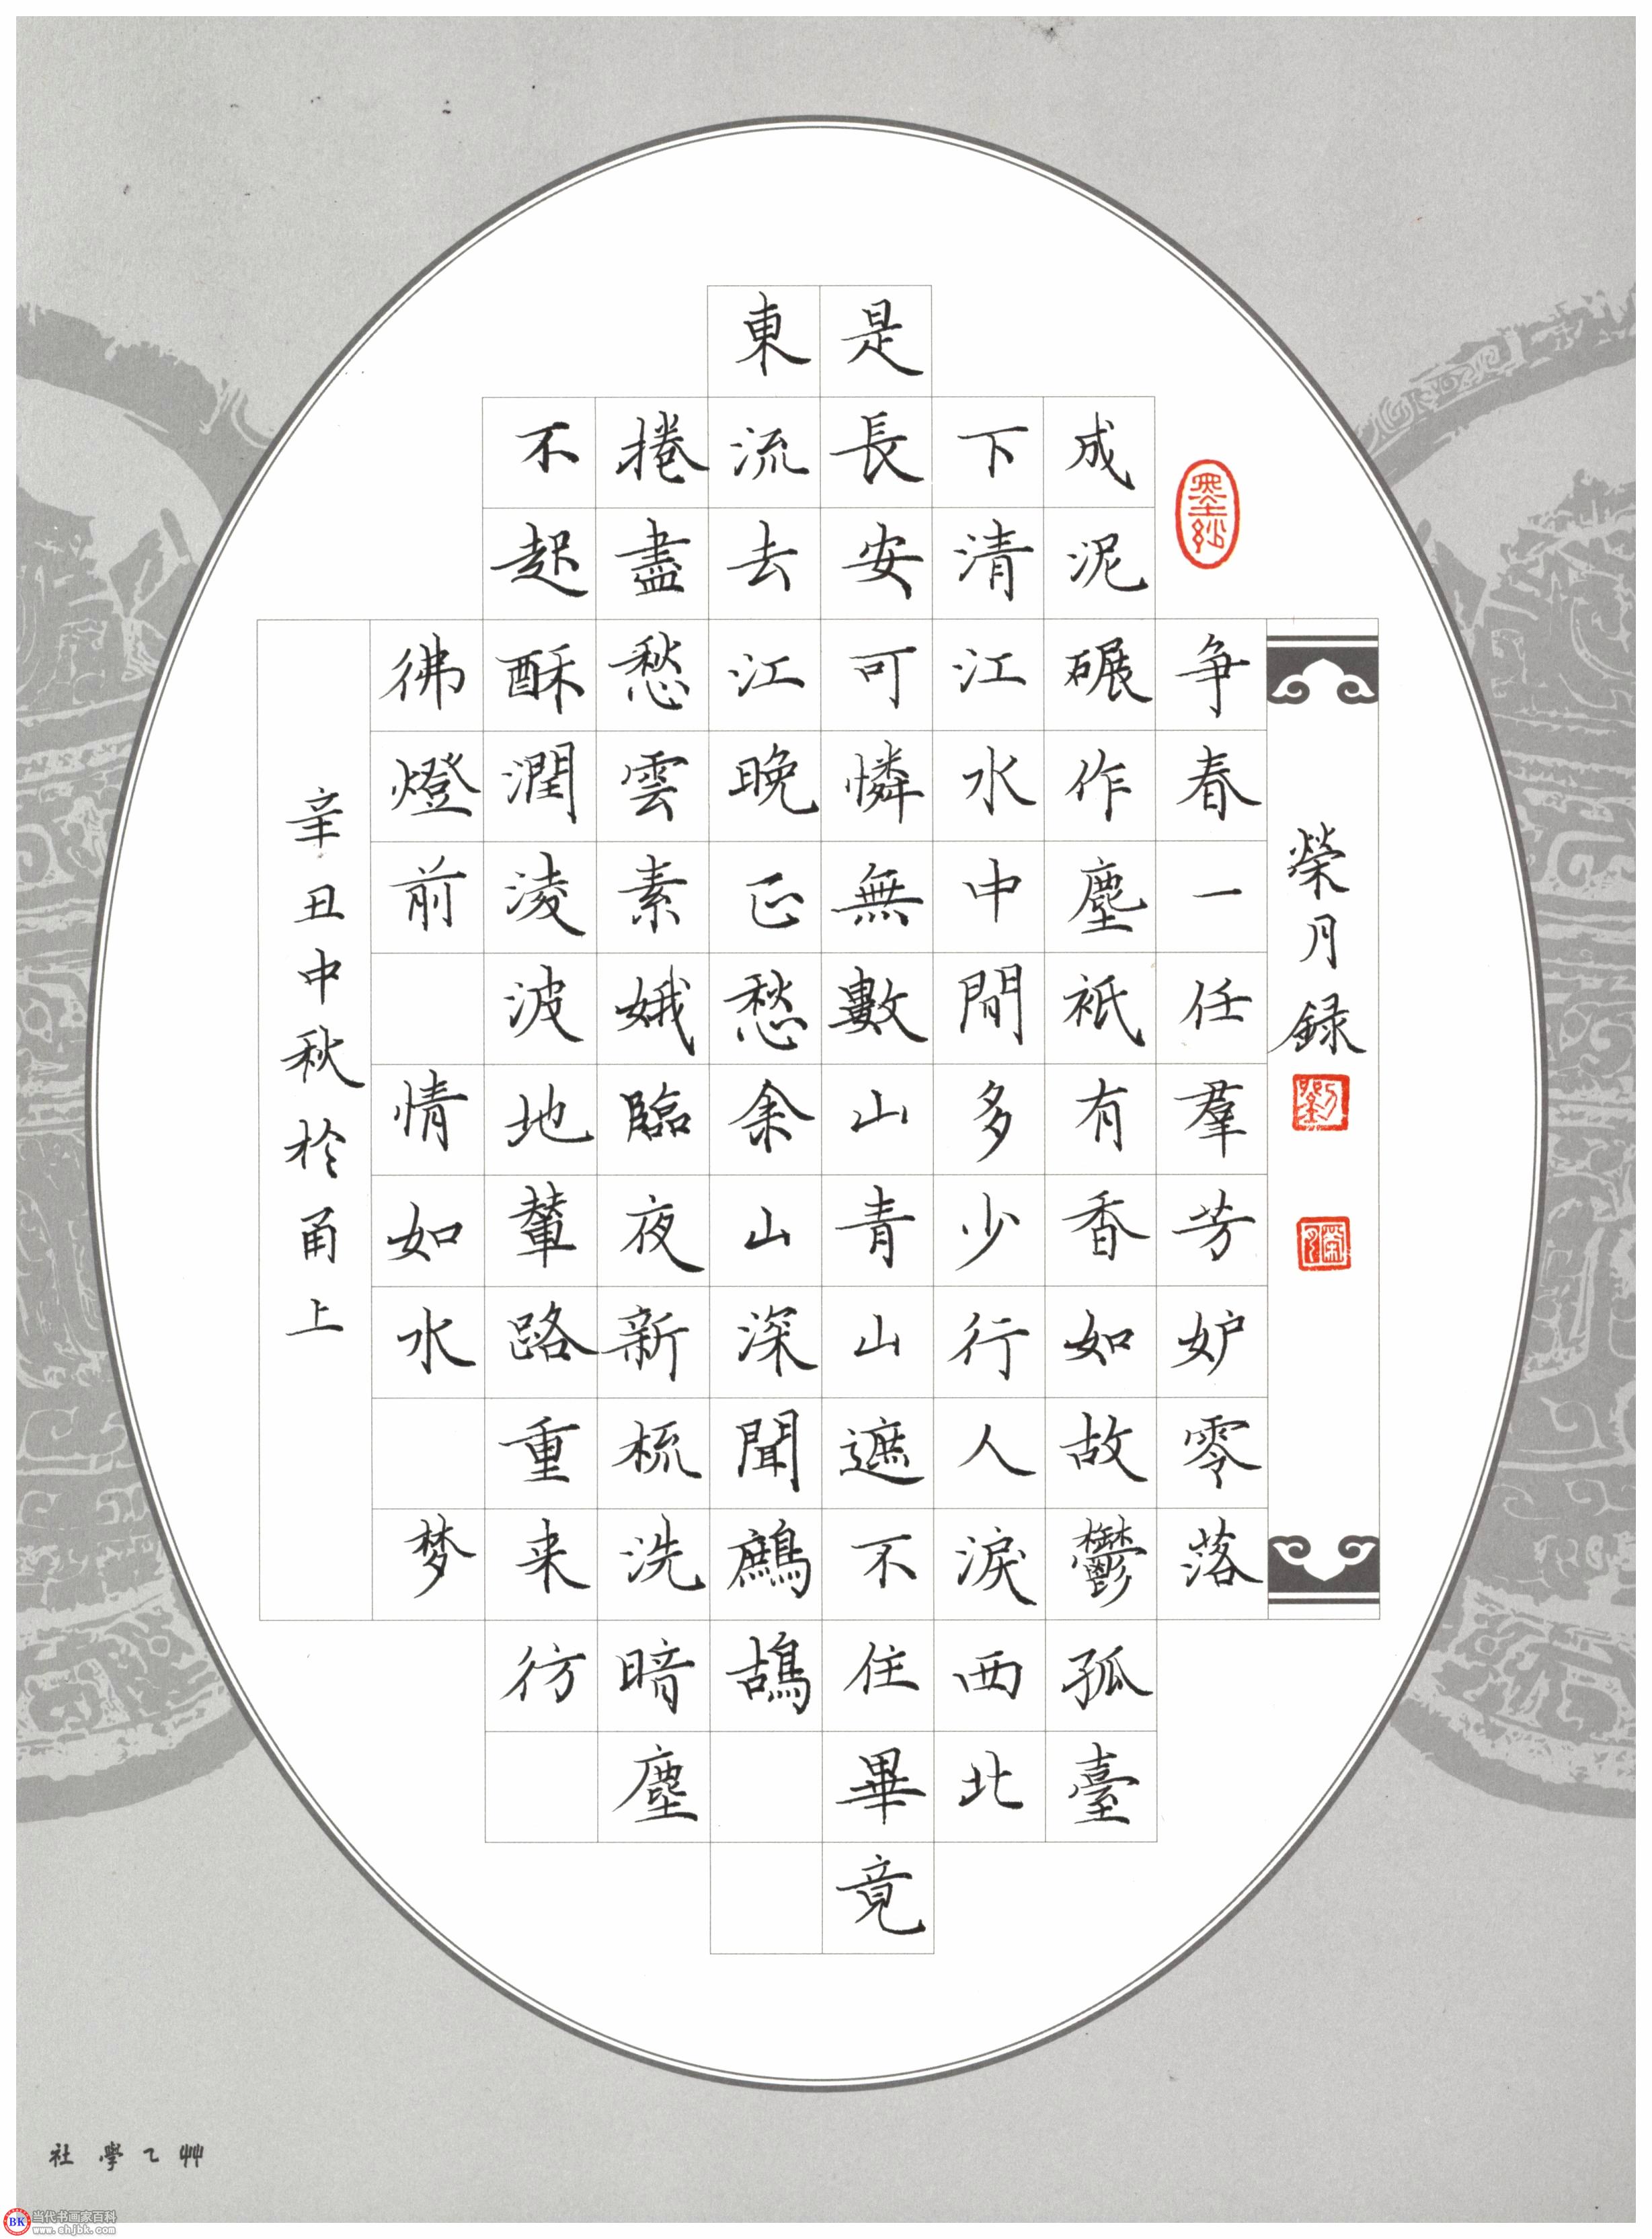 墨緣
榮月録
劉
榮月
争春一任羣芳妒零落
成泥碾作塵衹有香如故鬱孤臺
下清江水中間多少行人淚西北
是長安可憐無數山青山遮不住畢竟
東流去江晚正愁余山深聞鷓鴣
捲盡愁雲素娥臨夜新梳洗暗塵
不起酥潤淩波地輦路重来彷
彿燈前情如水梦
辛丑中秋於甬上
社學乙艸
BK 当代书画家百科
www.shjbk.com